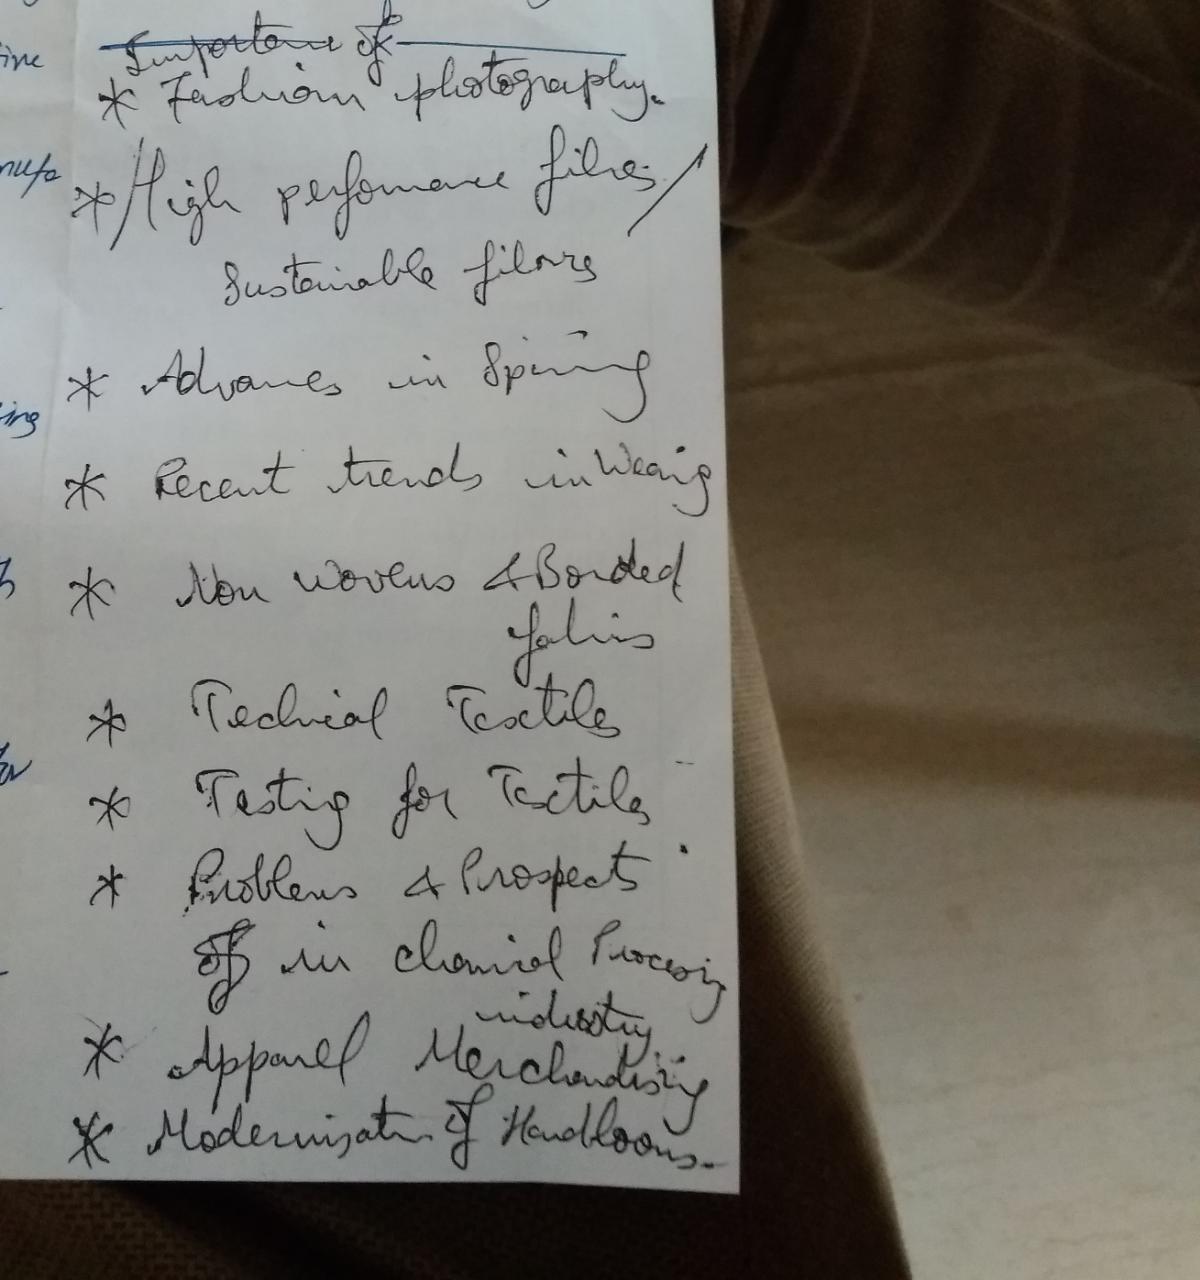 ine
Importance of
* Fashion photography.
nufa
* / High perfomance fibres /
Sustainable fibres
* Advances in Spinning
ing
* Recent trends in Weaving
* Non wovens & Bonded
fabrics
* Technical Textiles
* Testing for Textiles
* Problems & Prospects
of in chemical Processing
industry
* Apparel Merchandising
* Modernisation of Handlooms.